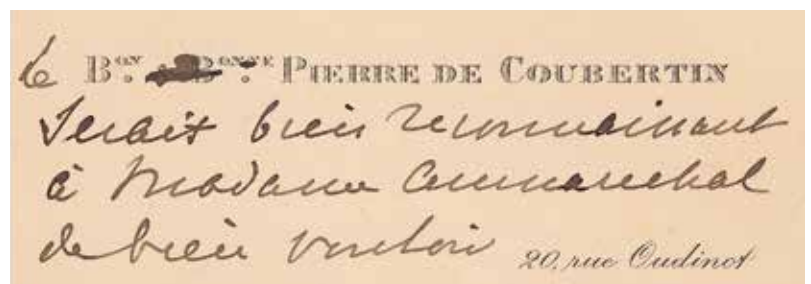 le Bᵒⁿ & Bᵒⁿⁿᵉ PIERRE DE COUBERTIN
serait bien reconnaissant
à Madame
de bien vouloir 20, rue Oudinot